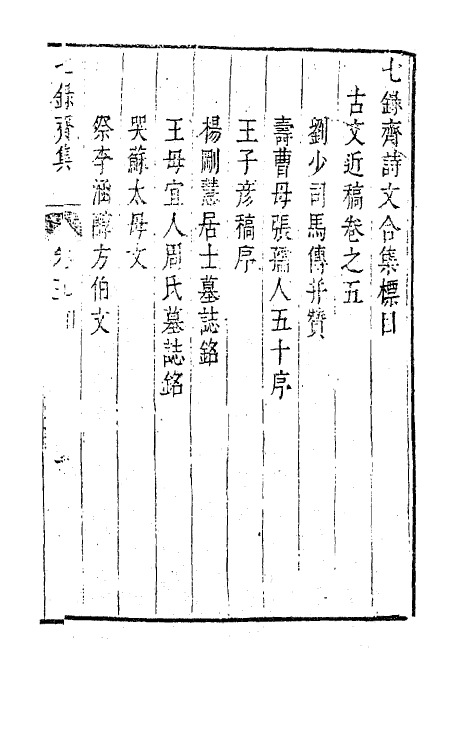 七錄齋詩文合集標目
古文近稿卷之五
劉少司馬傳并贊
壽曹母張孺人五十序
王子彥稿序
楊剛慧居士墓誌銘
王母宜人周氏墓誌銘
哭蘇太母文
祭李涵醇方伯文
七錄齋集